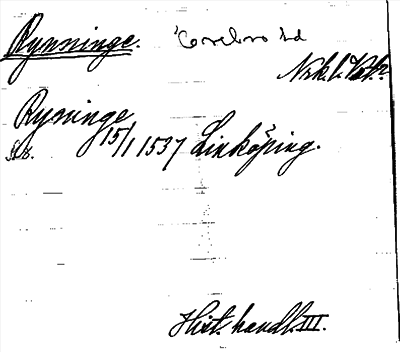 Rynninge. Örebro ld
Ryninge
15/1 1537 Linköping.
Hist. handl. III.